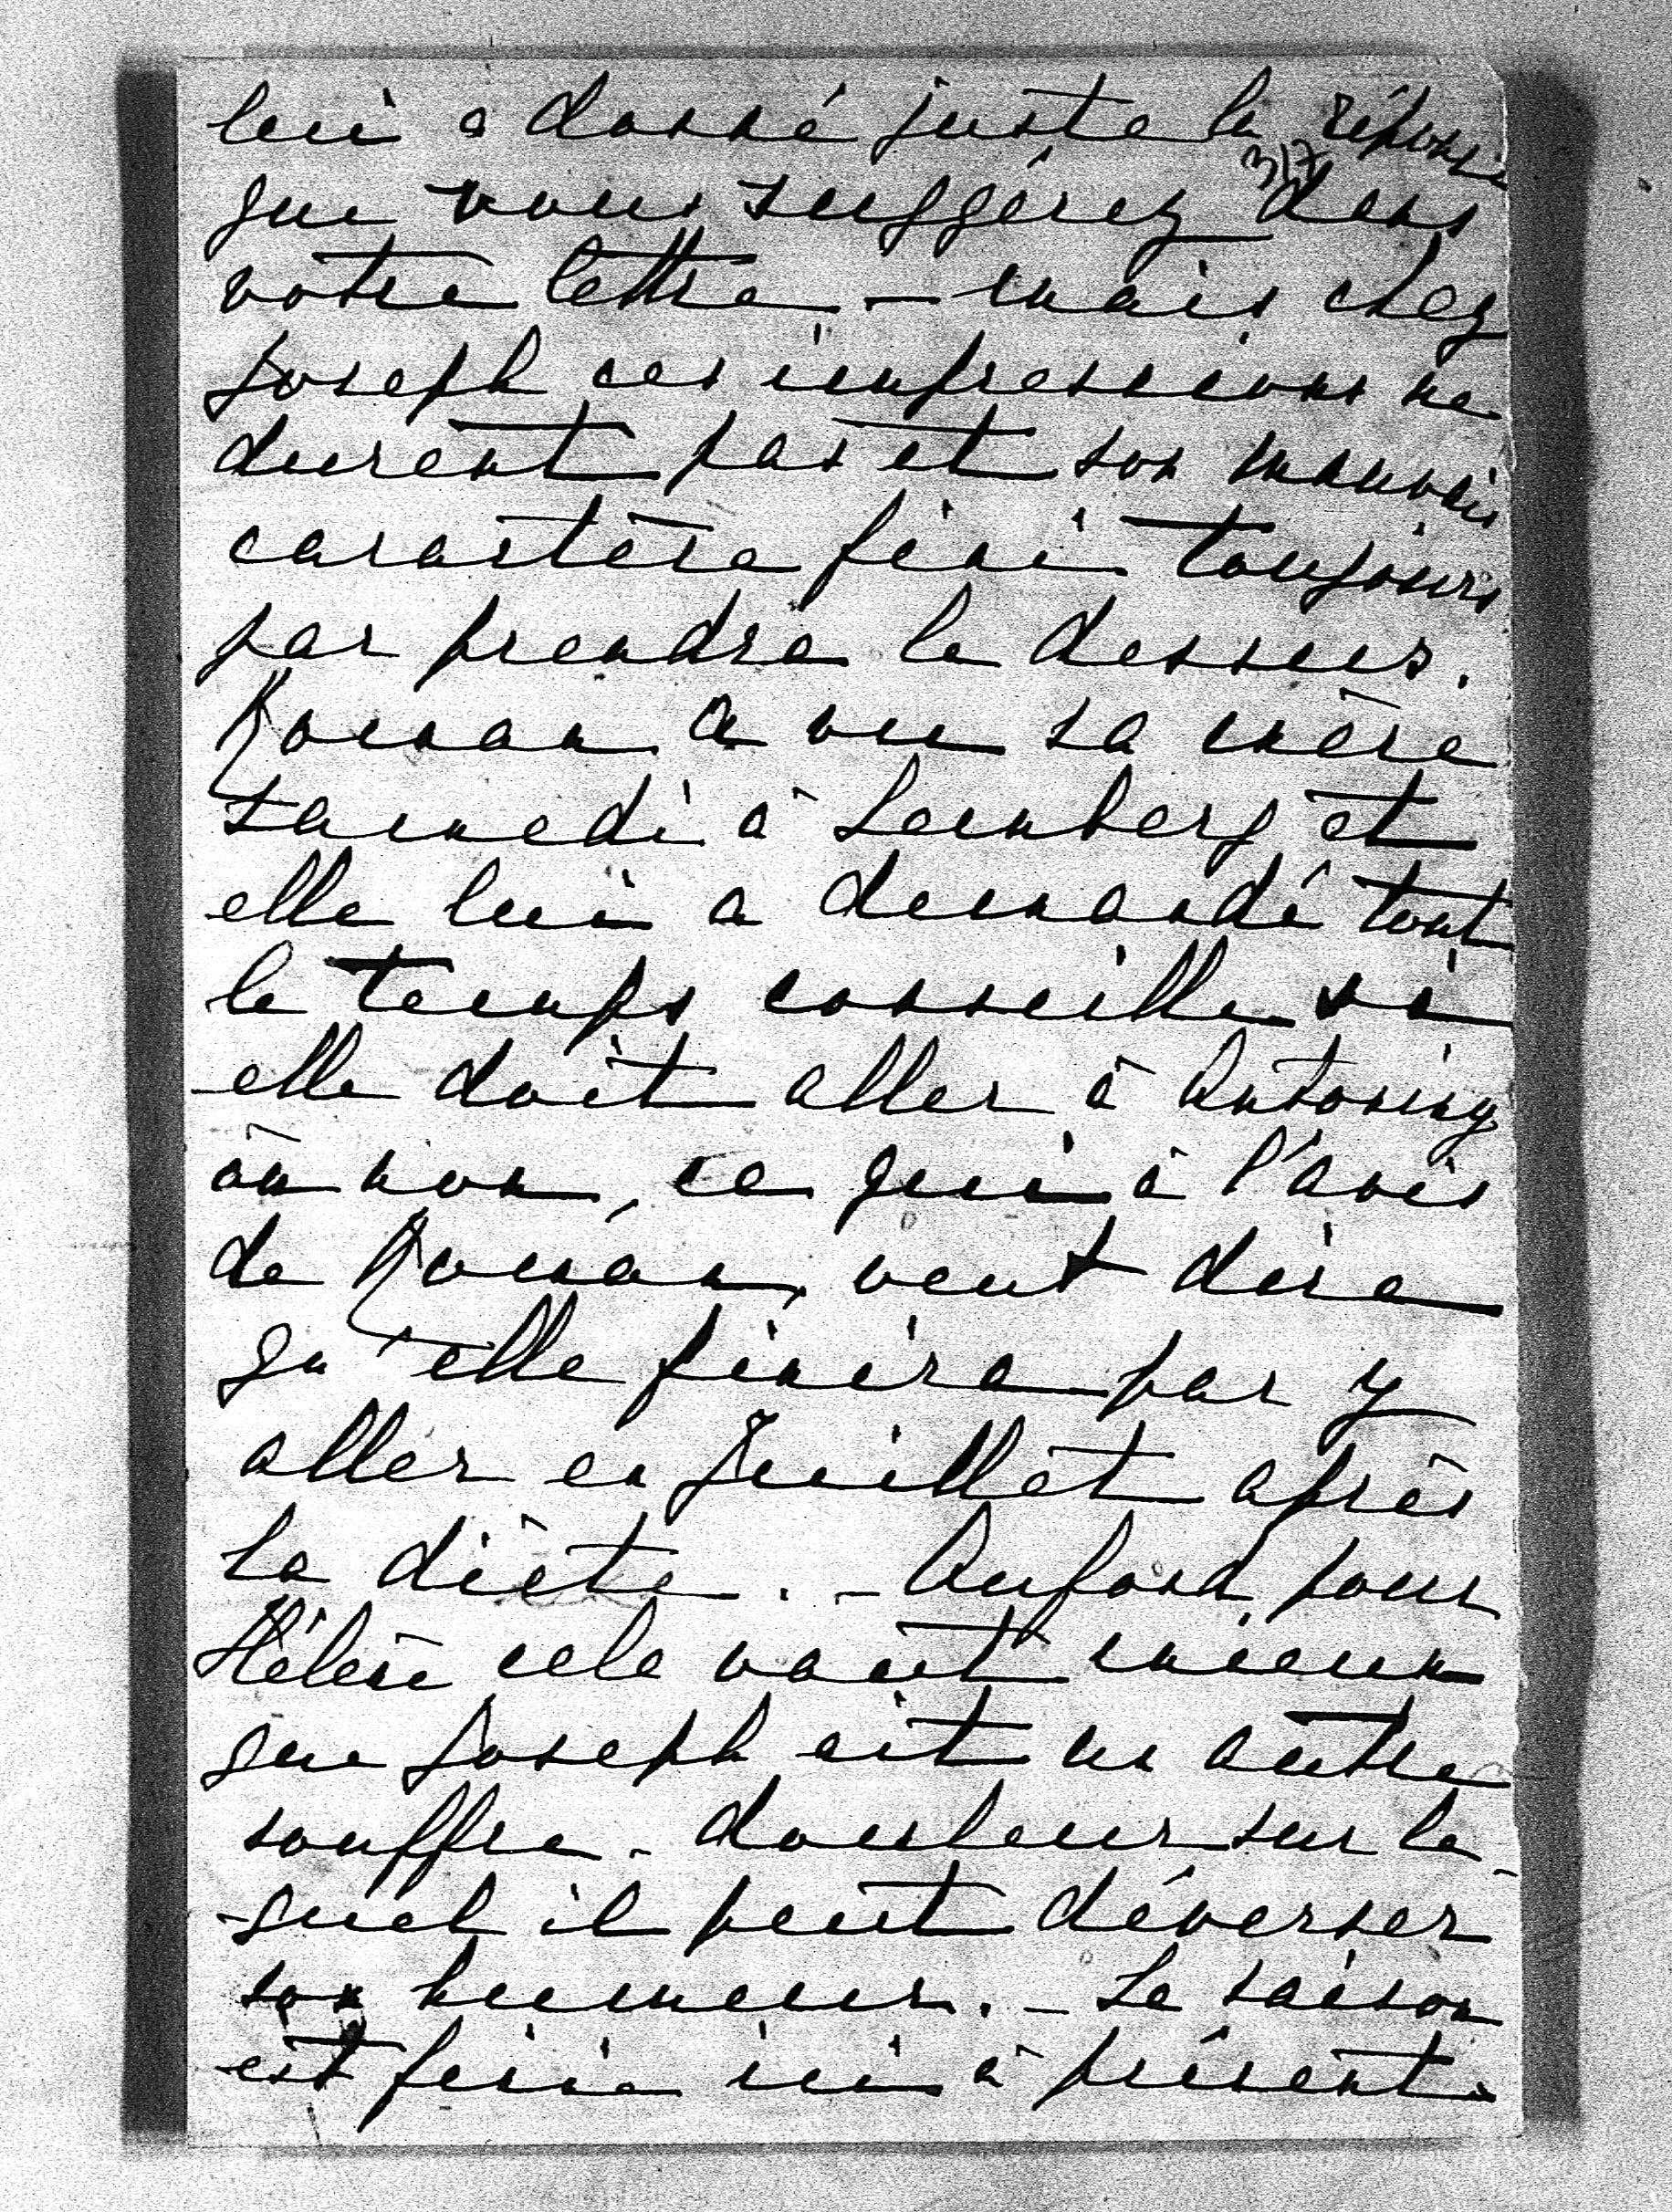 lui a donné juste la réponse
317
que vous suggérez dans
votre lettre – mais chez
Joseph ces impressions ne
durent pas et son mauvais
caractère fini toujours
par prendre le dessus.
Roman a vu sa mère
samedi à Lemberg et
elle lui a demandé tout
le temps conseille si
elle doit aller à Antoniny
ou non, ce qui à l'avis
de Roman, veut dire
qu'elle finira par y
aller en Juillet après
la diète. – Aufond pour
Hélène cela vaut mieux
que Joseph ait un autre
souffre-douleur sur le-
quel il peut déverser
son humeur. – La saison
est finie ici à présent.